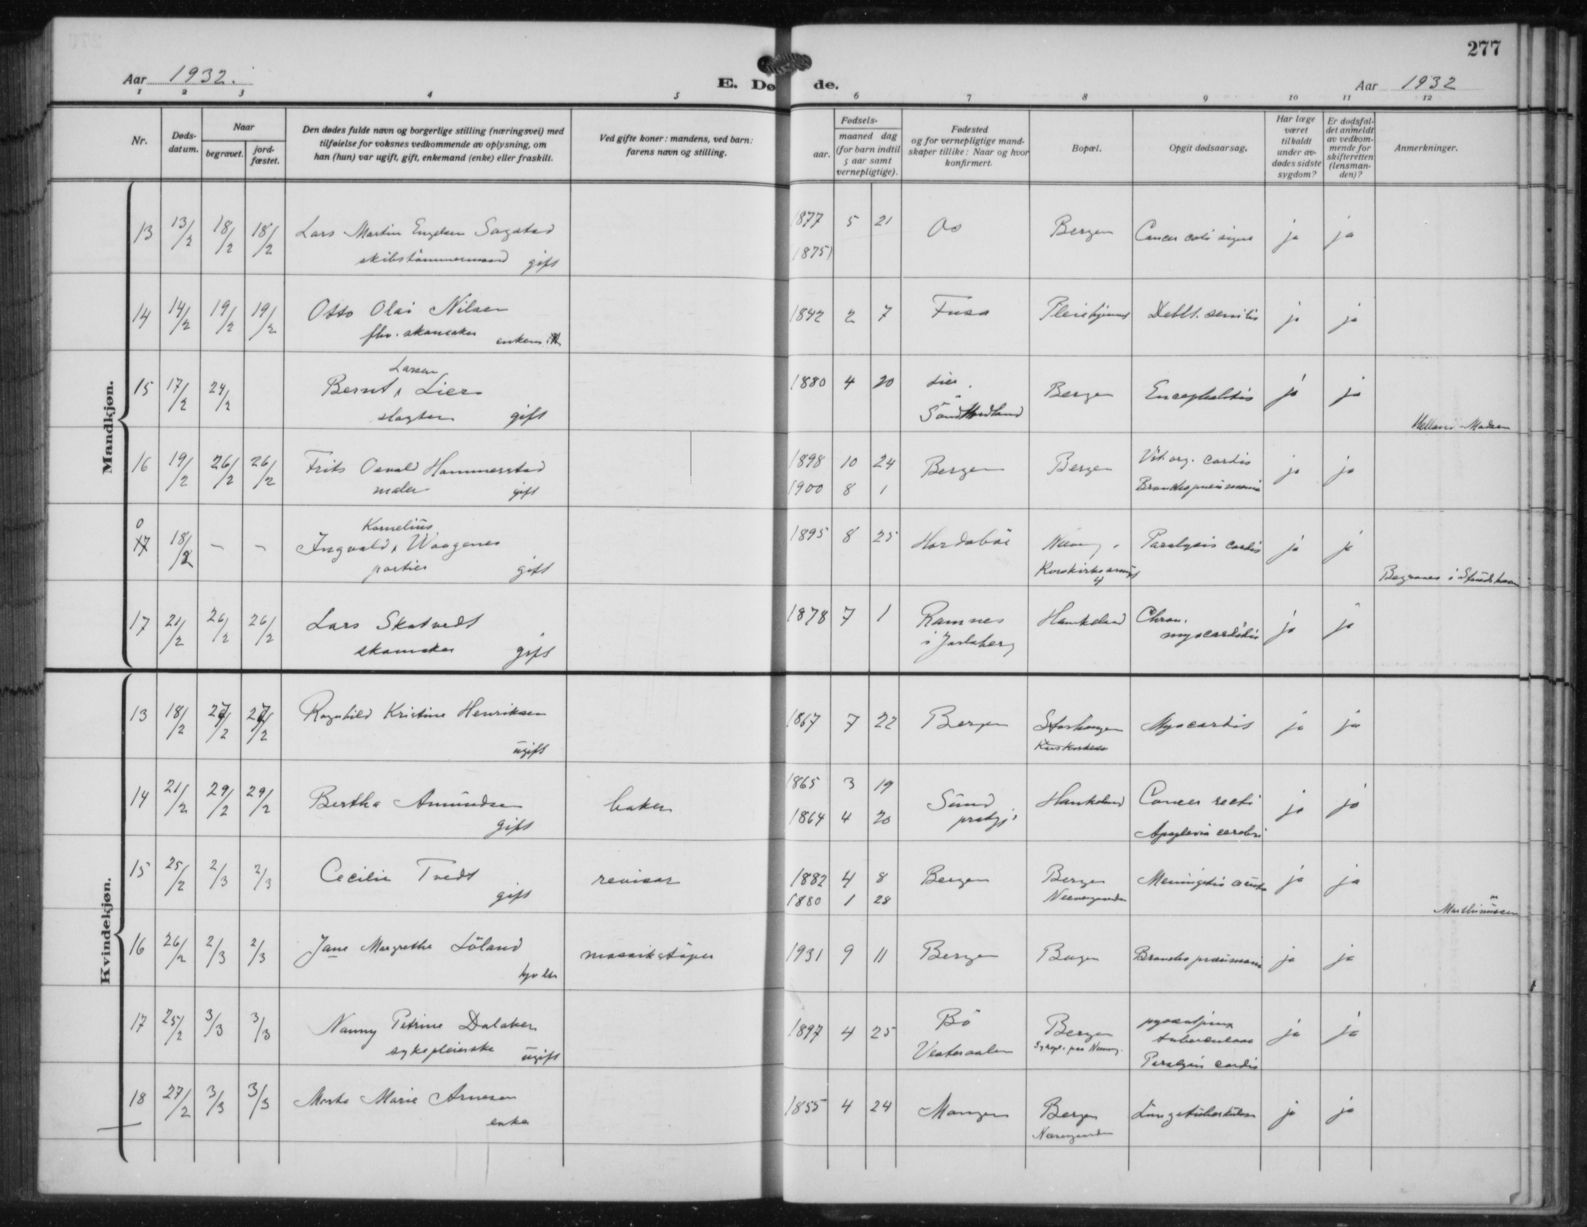 277
Aar 1932.
E. Dø de.
Aar 1932
1 2 3 4 5 6 7 8 9 10 11 12
Nr.
Døds-
datum.
Naar
begravet.
jord-
fæstet.
Den dødes fulde navn og borgerlige stilling (næringsvei) med
tilføielse for voksnes vedkommende av oplysning, om
han (hun) var ugift, gift, enkemand (enke) eller fraskilt.
Ved gifte koner: mandens, ved barn:
farens navn og stilling.
Fødsels-
aar.
maaned dag
(for barn indtil
5 aar samt
vernepligtige).
Fødested
og for vernepligtige mand-
skaper tillike: Naar og hvor
konfirmert.
Bopæl.
Opgit dødsaarsag.
Har læge
været
tilkaldt
under av-
dødes sidste
sygdom?
Er dødsfal-
det anmeldt
av vedkom-
mende for
skifteretten
(lensman-
den)?
Anmerkninger.
Mandkjøn.
13 13/2 18/2 18/2 Lars Martin Engelsen Sagstad 1877 5 21 Os Bergen Cancer ja ja
skibstømmermand gift (1875)
14 14/2 19/2 19/2 Otto Olai Nilsen 1842 2 7 Fusa Pleiehjemmet Debilt. senilis ja ja
fhv. skomaker enkem.
Larsen
15 17/2 24/2 Bernt Lier 1880 4 20 Lier Bergen Encephalitis ja ja
slagter gift Søndhordland
Helland-Madsen
16 19/2 26/2 26/2 Frits Osvald Hammerstad 1898 10 24 Bergen Bergen Vit. org. cordis ja ja
maler gift 1900 8 1 Bronchopneumonia
Kornelius
0 17 18/2 – – Ingvald Waagenes 1895 8 25 Hordabø Paralysis cordis ja ja
portier gift Korskirkealm. 4
Begraves i
17 21/2 26/2 26/2 Lars Skatvedt 1878 7 1 Ramnes Haukeland Chron. ja ja
skomaker gift i Jarlsberg myocarditis
Kvindekjøn.
13 18/2 27/2 27/2 Ragnhild Kristine Henriksen 1867 7 22 Bergen Storhaugen Myocardis ja ja
ugift
14 21/2 29/2 29/2 Bertha Amundsen baker 1865 3 19 Sund Haukeland Cancer recti ja ja
gift 1864 4 20 prstgj. Apoplexia cerebri
15 25/2 2/3 2/3 Cecilie Tvedt revisor 1882 4 8 Bergen Bergen Meningitis acuta ja ja
gift 1880 1 28
Marthinussen
16 26/2 2/3 2/3 Jane Margrethe Løland mosaikstøper 1931 9 11 Bergen Bergen Broncho pneumonia ja ja
17 25/2 3/3 3/3 Nanny Petrine Dalaker 1897 4 25 Bø Bergen ja ja
sykepleierske ugift Vesteraalen tuberculosa
Paralysis cordis
18 27/2 3/3 3/3 Marta Marie Arnesen 1855 4 24 Manger Bergen Lungetuberkulose ja ja
enke